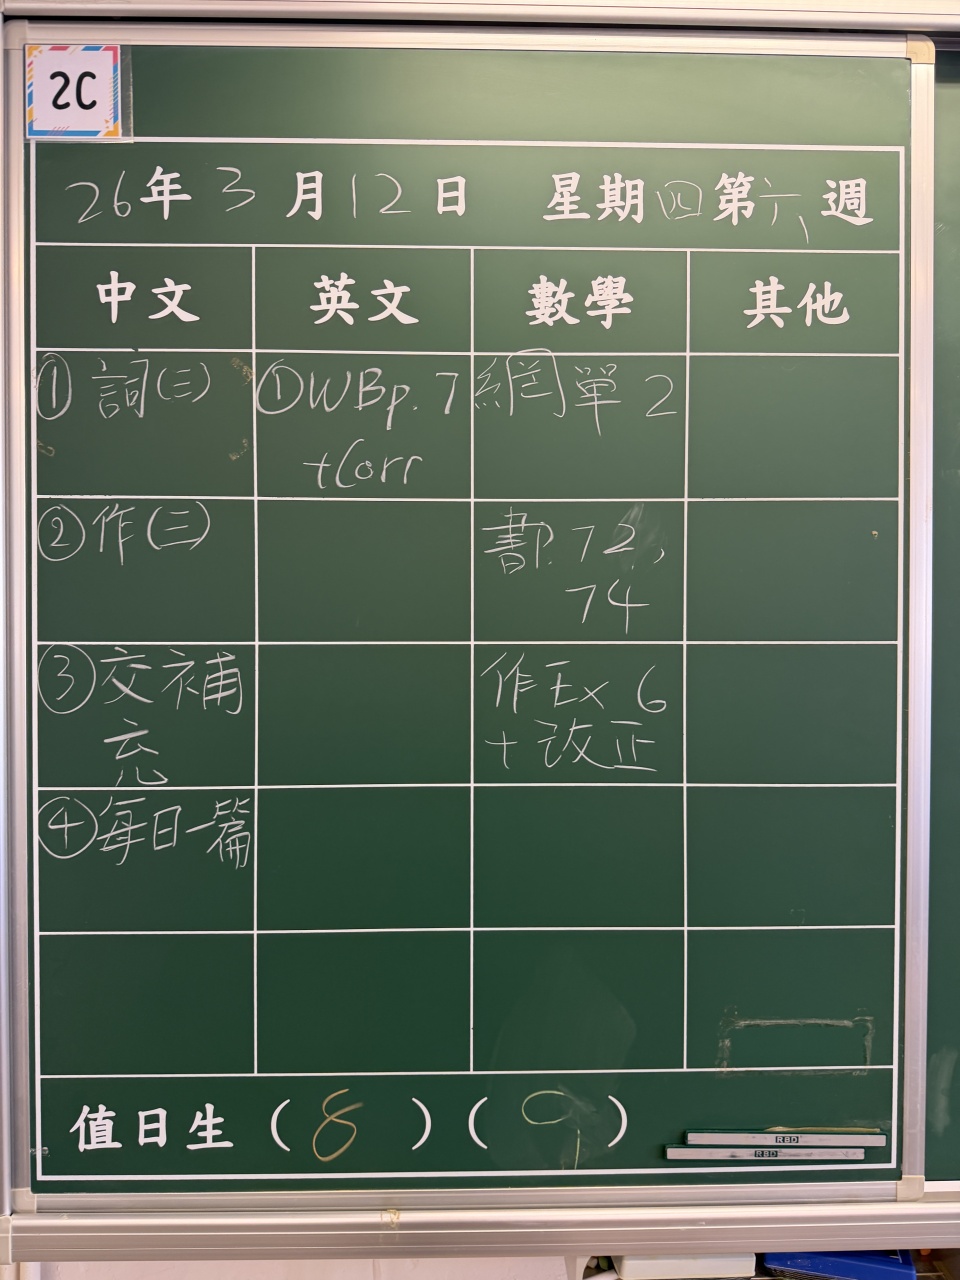 2C
26年3月12日 星期四第六週
中文 英文 數學 其他
①詞(三) ①WBp.7 網單2
+Corr
②作(三) 書P.72,
74
③交補 作Ex 6
充 +改正
④每日一篇
值日生(8)(9)
RBD
RBD